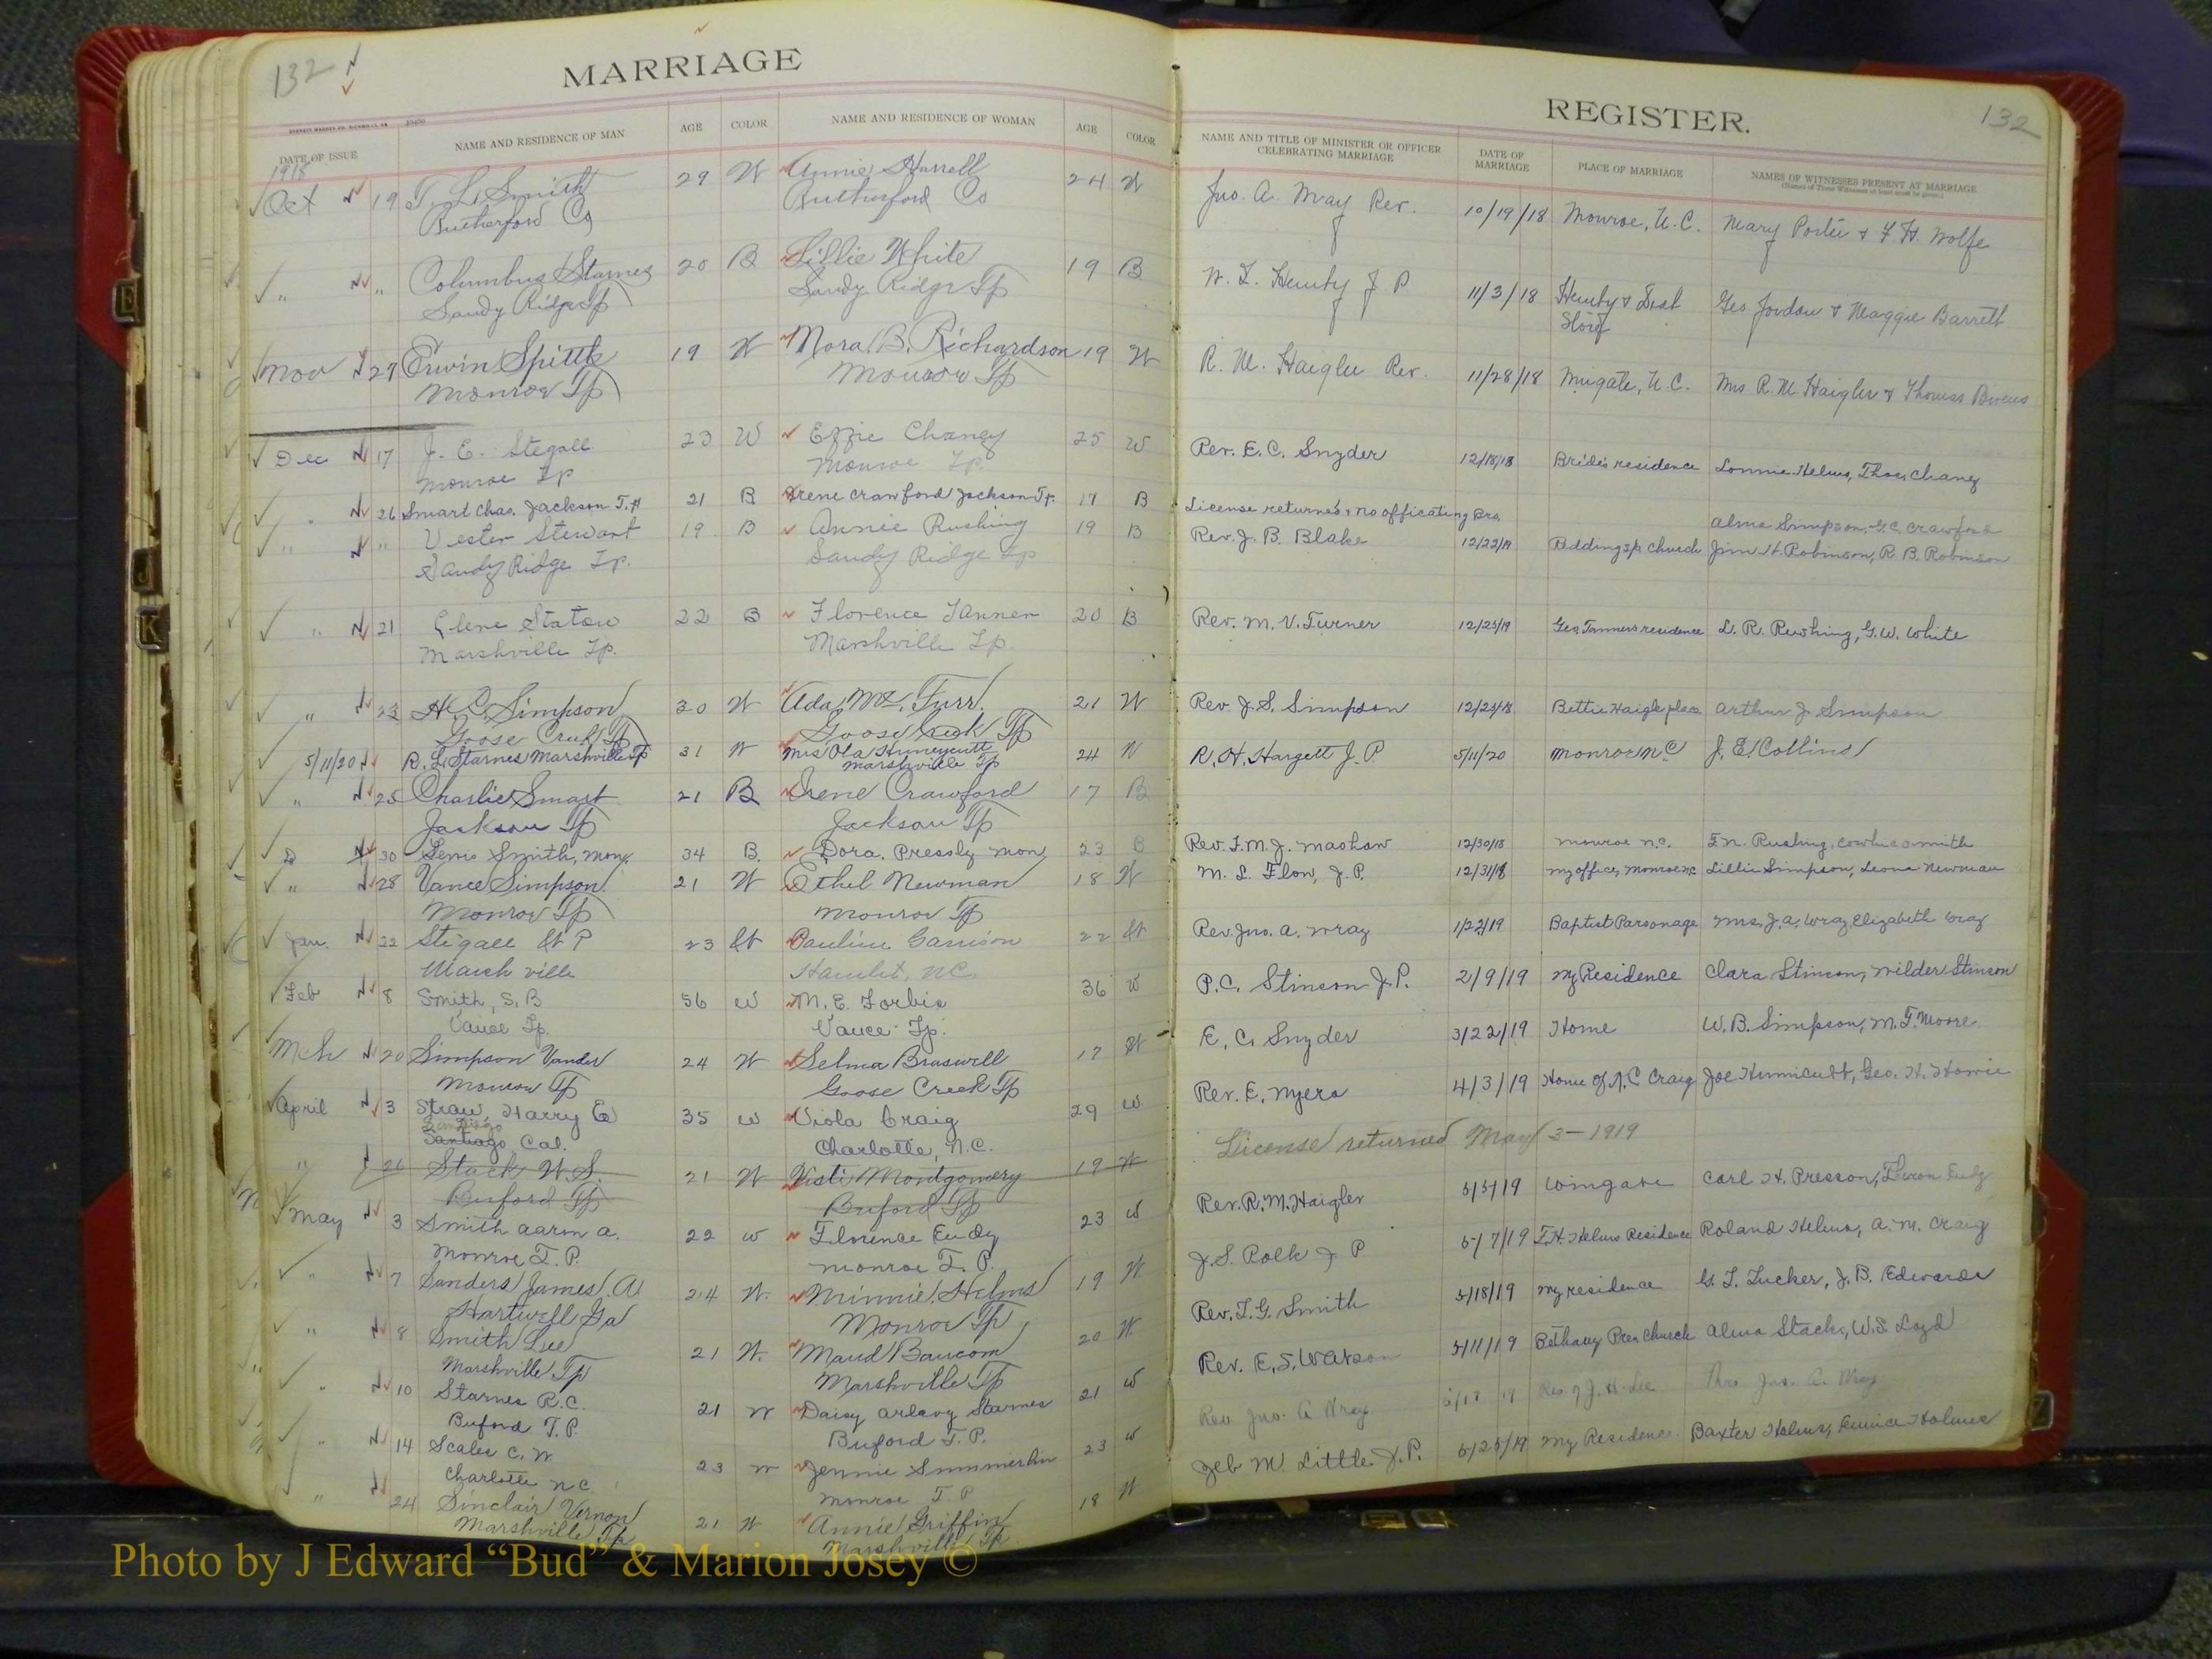 132
MARRIAGE
DATE OF ISSUE NAME AND RESIDENCE OF MAN AGE COLOR NAME AND RESIDENCE OF WOMAN AGE COLOR
1918
Oct 19 T. L. Smith 29 W Annie Harrell 24 W
Rutherford Co Rutherford Co
" " Columbus Starnes 20 B Lillie White 19 B
Sandy Ridge Tp Sandy Ridge Tp
Nov 27 Erwin Spittle 19 W Nora B. Richardson 19 W
Monroe Tp Monroe Tp
Dec 17 J. E. Stegall 23 W Effie Chaney 25 W
Monroe Tp Monroe Tp.
" 26 Smart Chas. Jackson T.P 21 B Irene Crawford Jackson T.P. 17 B
" " Vester Stewart 19 B Annie Rushing 19 B
Sandy Ridge Tp. Sandy Ridge Tp
" 21 Glenn Staton 22 B Florence Tanner 20 B
Marshville Tp. Marshville Tp.
" 23 H. C. Simpson 30 W Ada Mc. Furr 21 W
Goose Creek Tp Goose Creek Tp
5/11/20 R. L. Starnes Marshville Tp 31 W Mrs Ola Hunneycutt 24 W
Marshville Tp
" 25 Charlie Smart 21 B Irene Crawford 17 B
Jackson Tp Jackson Tp
D 30 Lewis Smith, Mon. 34 B. Dora Pressly Mon 23 B
" 28 Vance Simpson 21 W Ethel Newman 18 W
Monroe Tp Monroe Tp
Jan. 22 Stegall P 23 W Pauline Garrison 22 W
Marshville Hamlet, NC
Feb 8 Smith, S. B 56 W M. E. Forbis 36 W
Vance Tp. Vance Tp.
Mch 20 Simpson Vander 24 W Selma Braswell 17 W
Monroe Tp Goose Creek Tp
April 3 Straw, Harry E 35 W Viola Craig 29 W
San Diego
Santiago Cal. Charlotte, N.C.
" 26 Stack W. S. 21 W Montgomery 19 W
Buford Tp Buford Tp
May 3 Smith Aaron A. 22 W Florence Eudy 23 W
Monroe T. P. Monroe T. P.
" 7 Sanders James A. 24 W. Minnie Helms 19 W
Hartwell Ga Monroe Tp
" 8 Smith Lee 21 W. Maud Baucom 20 W
Marshville Tp Marshville Tp
" 10 Starnes R. C. 21 W Daisy Starnes 21 W
Buford T. P. Buford T. P.
" 14 Scales C. W 23 W Jennie Summerlin 23 W
Charlotte N C. Monroe T. P
" 24 Sinclair Vernon 21 W Annie Griffin 18 W
Marshville Tp Marshville Tp
REGISTER.
132
NAME AND TITLE OF MINISTER OR OFFICER CELEBRATING MARRIAGE DATE OF MARRIAGE PLACE OF MARRIAGE NAMES OF WITNESSES PRESENT AT MARRIAGE
Jno. A. May Rev. 10/19/18 Monroe, N. C. Mary Porter & F. H. Wolfe
W. L. Hemby J. P. 11/3/18 Hemby & Deal Geo. Jordan & Maggie Barrett
Store
R. M. Haigler Rev. 11/28/18 Wingate, N. C. Mrs R. M. Haigler & Thomas Bivens
Rev. E. C. Snyder 12/18/18 Bride's residence Lonnie Helms, Thos. Chaney
License returned & no officating Pro. Alma Simpson, G. C. Crawford
Rev. J. B. Blake 12/22/19 Redding sp. church Jim H. Robinson, R. B. Robinson
Rev. M. V. Turner 12/25/19 Geo. Tanners residence L. R. Rushing, G. W. White
Rev J. S. Simpson 12/25/18 Bettie Haigle place Arthur J Simpson
R. H. Hargett J. P 5/11/20 Monroe N.C J. E. Collins
Rev. F. M. J. Mashaw 12/30/18 Monroe N.C. F. N. Rushing, Smith
M. L. Flow, J. P. 12/31/18 My office, Monroe NC Lillie Simpson, Leona Newman
Rev. Jno. A. Wray 1/22/19 Baptist Parsonage Mrs. J. A. Wray, Elizabeth Wray
P. C. Stinson J. P. 2/9/19 My Residence Clara Stinson, Wilder Stinson
E. C. Snyder 3/22/19 Home W. B. Simpson, M. F. Moore
Rev. E. Myers 4/3/19 Home of A. C Craig Joe Hunnicutt, Geo. H. Howie
License returned May 3 - 1919
Rev. R. M. Haigler 5/5/19 Wingate Carl H. Presson, Theron Eudy
J. S. Polk J P 5/7/19 F. H. Helms Residence Roland Helms, A. M. Craig
Rev. T. G. Smith 5/18/19 My residence G. T. Tucker, J. B. Edwards
Rev. E. S. Watson 5/11/19 Bethany Pres Church Alma Stacks, W. S. Loyd
Rev Jno. A Wray 5/18 19 Res. of J. H. Lee Mrs Jno. A. Wray
Zeb M. Little J. P. 5/25/19 My Residence Baxter Helms, Eunice Holmes
Photo by J Edward “Bud” & Marion Josey ©